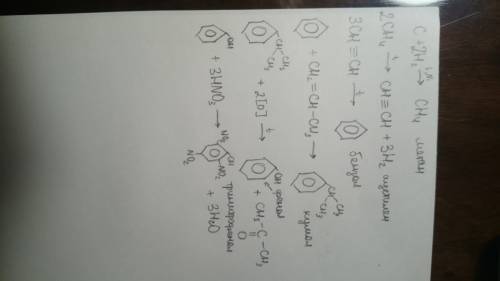 C + 2H₂ → CH₄ метан
2CH₄ → CH≡CH + 3H₂ ацетилен
3CH≡CH → бензол
+ CH₂=CH-CH₃ → CH-CH₃ CH₃ кумол
CH-CH₃ CH₃ + 2[O] → OH фенол + CH₃-C-CH₃ O
OH + 3HNO₃ → NO₂ OH NO₂ NO₂ + 3H₂O
тринитрофенол